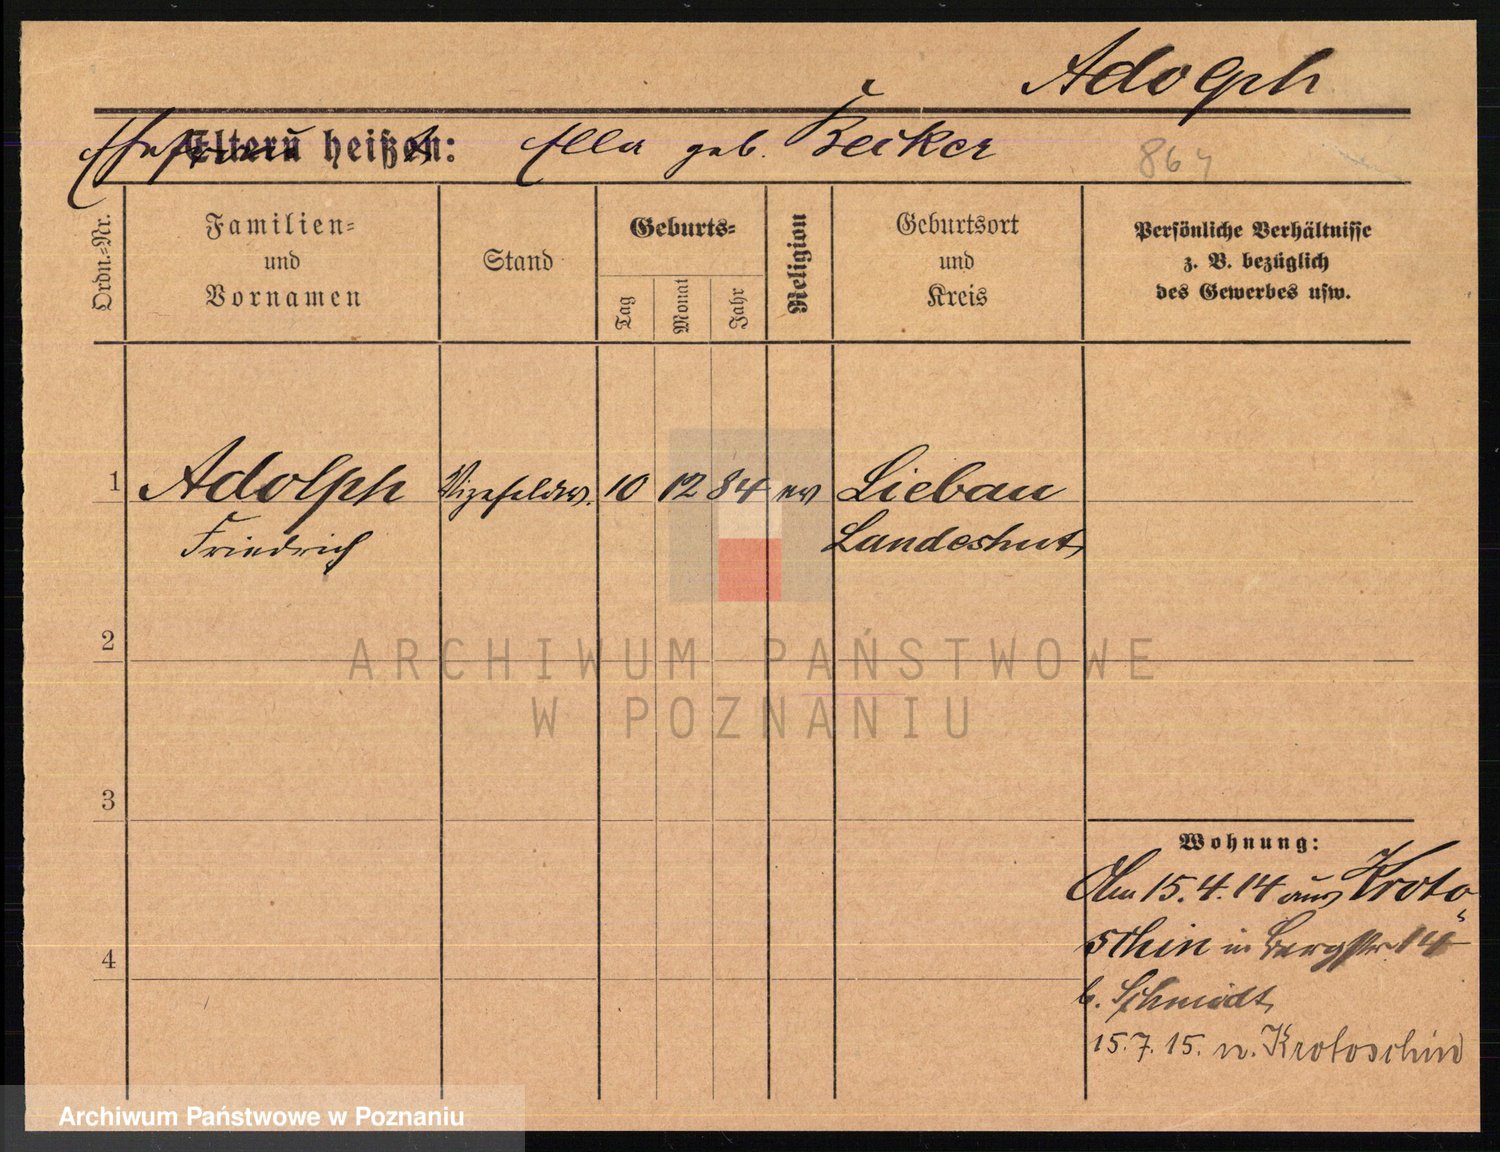 Adolph
Ehefrau heißt: Ella geb. Becker
864
Ordn.-Nr.
Familien- und Vornamen
Stand
Geburts-
Tag
Monat
Jahr
Religion
Geburtsort und Kreis
Persönliche Verhältnisse
z. B. bezüglich
des Gewerbes usw.
1 Adolph Vizefeldw. 10 12 84 ev Liebau
Friedrich Landeshut
2
ARCHIWUM PAŃSTWOWE
W POZNANIU
3
Wohnung:
Am 15.4.14 aus Kroto
schin in Bergstr. 14
4
b. Schmidt
15.7.15. n. Krotoschin
Archiwum Państwowe w Poznaniu